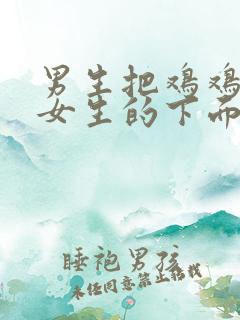 男生把鸡鸡
女生的下面
睡袍男孩
同意禁止